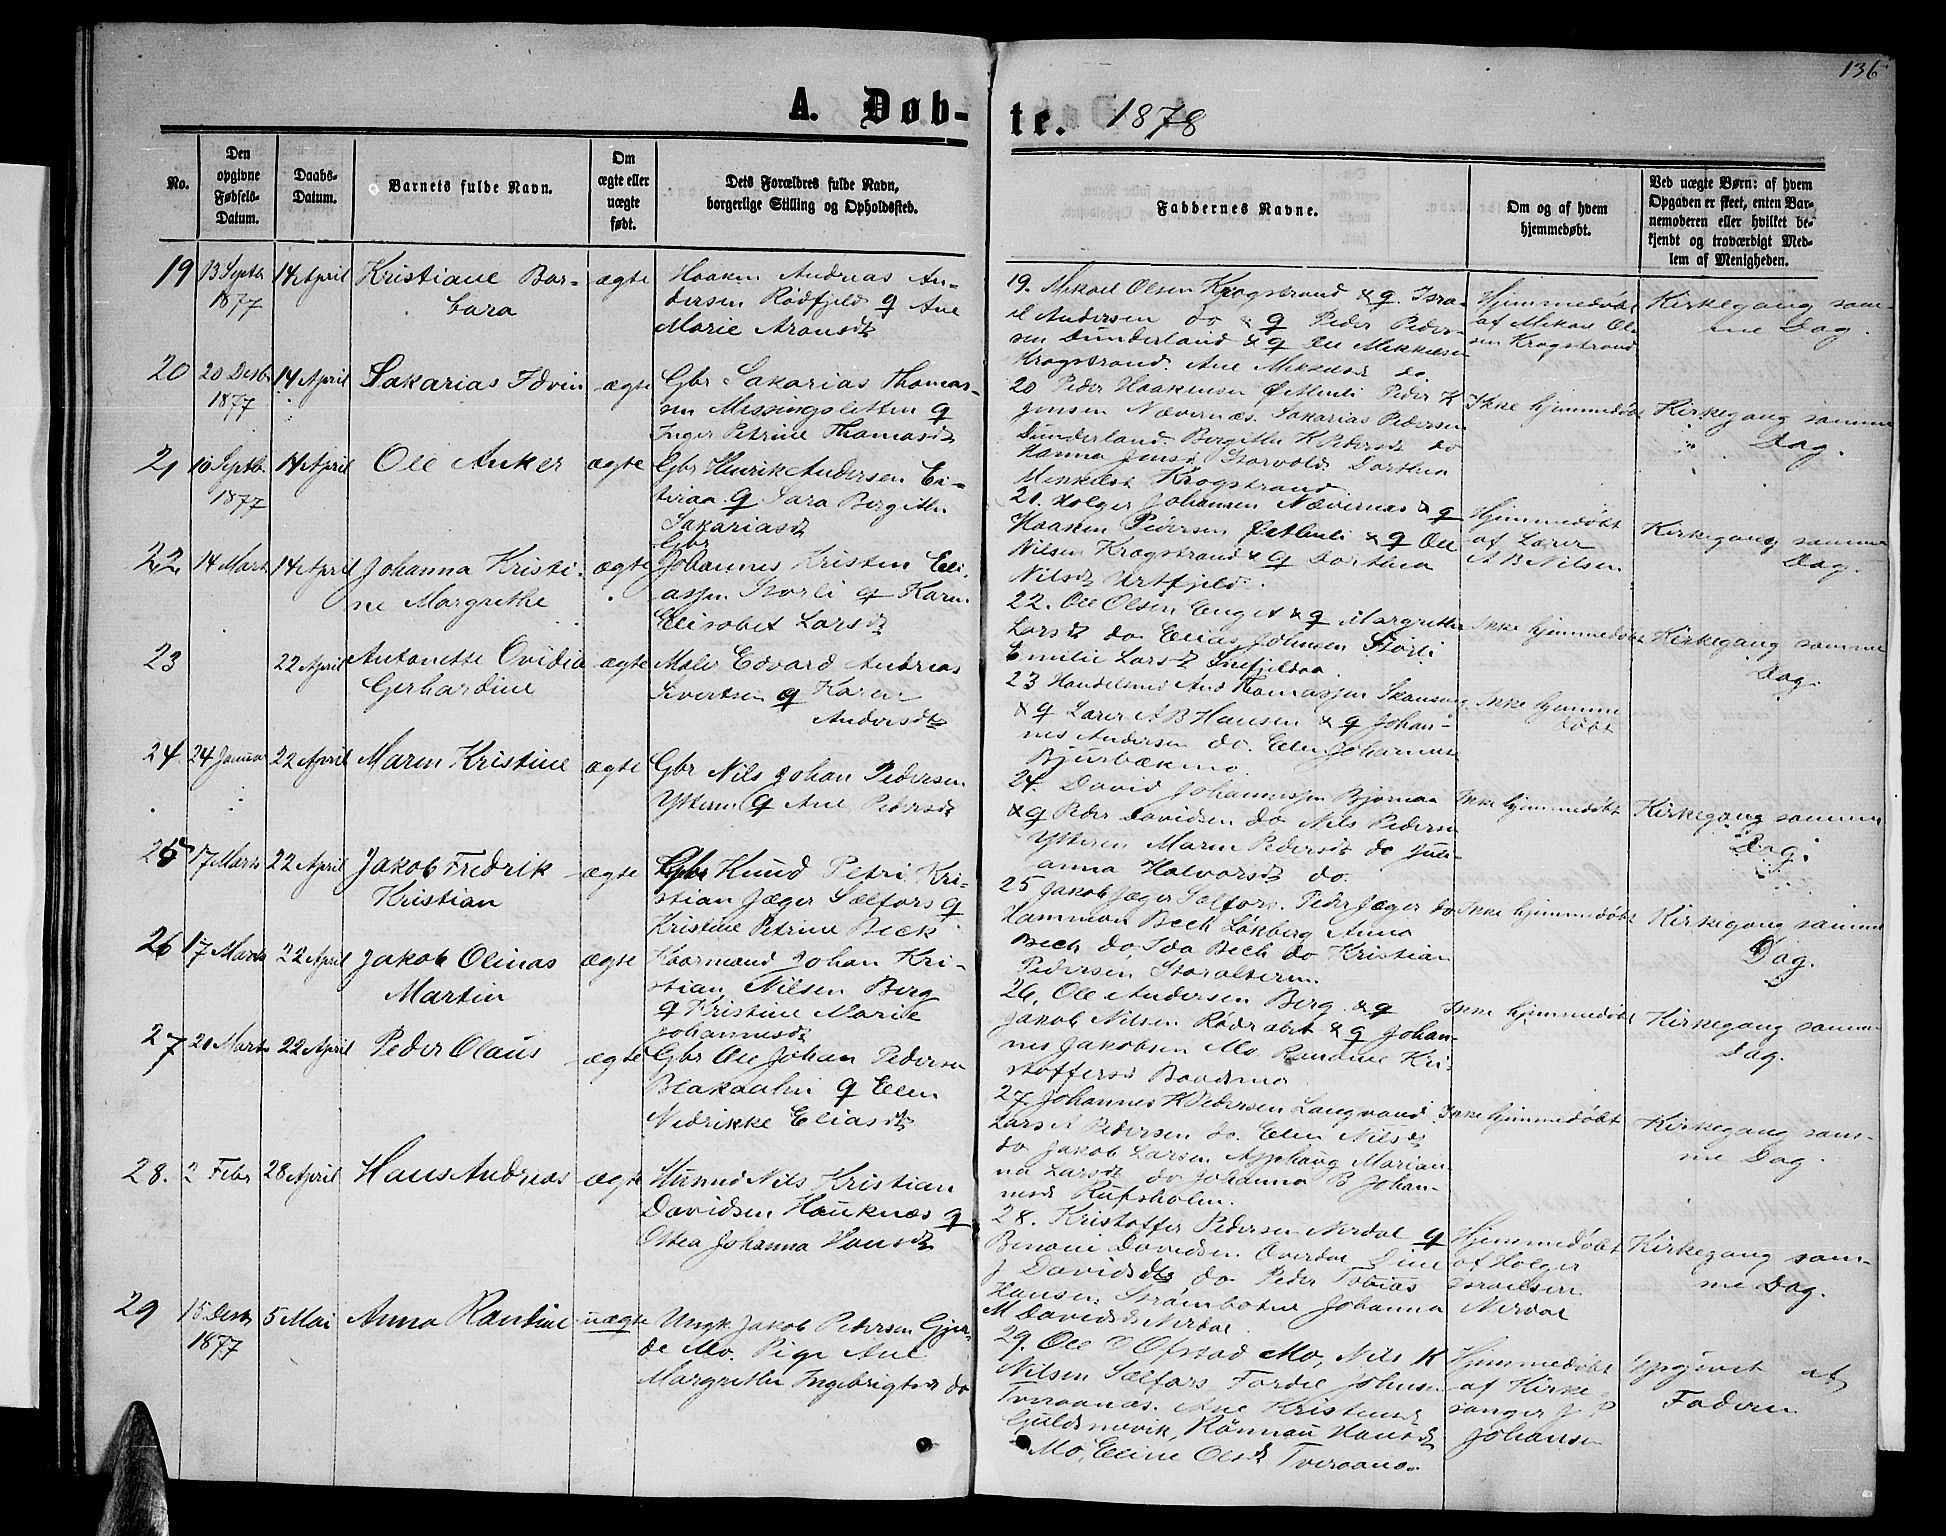 136
A. Døb-
te. 1878
No.
Den
opgivne
Fødsels-
Datum.
Daabs-
Datum.
Barnets fulde Navn.
Om
ægte eller
uægte
født.
Dets Forældres fulde Navn,
borgerlige Stilling og Opholdssted.
Faddernes Navne.
Om og af hvem
hjemmedøbt.
Ved uægte Børn: af hvem
Opgaven er skeet, enten Bar-
nemoderen eller hvilket be-
kjendt og troværdigt Med-
lem af Menigheden.
19 13 Septbr 14 April Kristiane Bar- ægte Haaken Andreas An-
1877 bara dersen Rødfjeld q Ane
Marie Aronsdt
19. Mikael Olsen Krogstrand & q. Isra-
el Andersen do & q Peder Peder-
sen Dunderland & q Ole Mikkelsen
Krogstrand. Ane Mikkelsd do
Hjemmedøbt
af Mikael Ol-
sen Krogstrand
Kirkegang sam-
me Dag.
20 20 Desbr 14 April Sakarias Edvin ægte Gbr Sakarias Thomas-
1877 sen Messingsletten q
Inger Petrine Thomasdt
20 Peder Haakensen Peder K
Jensen Nævernæs. Sakarias Pedersen
Dunderland. Bergithe K Pedersd do
Hanna Jensd Storvold Dorthea
Mikkelsd Krogstrand
Ikke hjemmedøbt
Kirkegang samme
Dag.
21 10 Septbr 14 April Ole Anker ægte Gbr Henrik Andersen Ei-
1877 teraa q Sara Bergithe
Sakariasdt
21. Holger Johansen Nævernæs & q
Haaken Pedersen & q Ole
Nilsen Krogstrand & q Dorthea
Nilsdt Urtfjeld.
Hjemmedøbt
af Lærer
A B Nilsen
Kirkegang samme
Dag.
22 14 Marts 14 April Johanna Kristi- ægte Gbr
ne Margrethe Johannes Kristen Eli-
assen Storli q Karen
Elisabet Larsdt
22. Ole Olsen Enget & q Margrethe
Larsdt do Elias Johnsen Storli
Emilie Larsdt
Ikke hjemmedøbt
Kirkegang samme
Dag.
23 22 April Antonette Ovidia ægte Maler Edvard Andreas
Gerhardine Sivertsen q Karen
Andersdt
23 Handelsmd And Thomassen
& q Lærer A B Hansen & q Johan-
nes Andersen do. Elen Johannesd
Bjurbækmo
Ikke hjemme
døbt
24 24 Januar 22 April Maren Kristine ægte Gbr Nils Johan Pedersen
Ytteren q Ane Pedersdt
24. David Johannessen Bjørnaa
& q Peder Davidsen do Nils Pedersen
Ytteren Maren Pedersdt do Juli-
anna Halvorsdt do
Ikke hjemmedøbt
Kirkegang samme
Dag.
25 17 Marts 22 April Jakob Fredrik ægte Gbr Knud Petri Kri-
Kristian stian Jæger Sælfors q
Kristine Petrine Beck
25 Jakob Jæger Sælfors. Peder Jæger do
Hammon Bech Løkberg Anna
Bech do, Ida Bech do Kristian
Pedersen Storalteren
Ikke hjemmedøbt
Kirkegang samme
Dag.
26 17 Marts 22 April Jakob Olinas ægte Kaarmand Johan Kri-
Martin stian Nilsen Berg
q Kristine Marie
Johannesdt
26, Ole Andersen Berg & q
Jakob Nilsen & q Johan-
nes Jakobsen Mo. Kri-
stoffersd Baadsmo
Ikke hjemmedøbt
Kirkegang samme
Dag.
27 21 Marts 22 April Peder Olaus ægte Gbr Ole Johan Pedersen
q Elen
Nedrikke Eliasdt
27. Johannes K Pedersen Langvand.
Lars A Pedersen do. Elen Nilsd
do Jakob Larsen Marian-
na Larsdt do Johanna B Johan-
nesd
Ikke hjemmedøbt
Kirkegang sam-
me Dag.
28. 2 Febr 28 April Hans Andreas ægte Husmd Nils Kristian
Davidsen Hauknæs q
Ottea Johanna Hansdt
28. Kristoffer Pedersen Nerdal q
Benoni Davidsen Overdal Line
J Davidsdt do Peder Tobias
Hansen. Strømbotne Johanna
M Davidsd Nerdal.
Hjemmedøbt
af Holger
Israelsen
Nerdal
Kirkegang sam-
me Dag.
29 15 Desbr 5 Mai Anna Randine uægte Ungk. Jakob Pedersen Gjer-
1877 de Mo. Pige Ane
Margrethe Ingebrigtsd do
29. Ole O Ofstad Mo, Nils K
Nilsen Sælfors Johnsen
Tveraanæs. Ane Kristensd
Guldsmevik, Rønnau Hansdt
Mo, Eline Olsd Tveraanæs
Hjemmedøbt
af Kirke-
sanger J P
Johansen
Opgivet af
Faderen